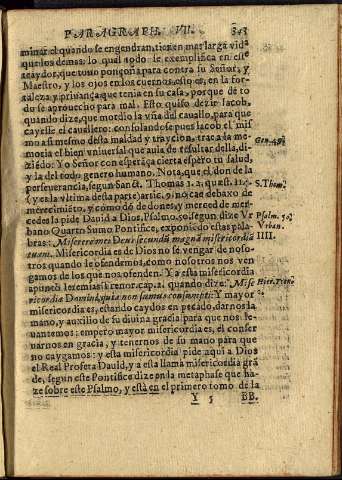 PARAGRAPH. VII. 343
minar el quando se engendran, tienen mas larga vida
que los demas, lo qual todo se exemplifica en este
traydor, que tuuo ponçoña para contra su Señor, y
Maestro, y los ojos en los cuernos, esto es, en la for-
taleza y priuança que tenia en su casa, porque de to
do se aprouecho para mal. Esto quiso dezir Iacob,
quando dize, que mordio la vña del cauallo, para que
cayesse el cauallero: consolandose pues Iacob el mis
mo a si mesmo desta maldad y traycion, trae a la me-
moria el bien vniuersal que auia de resultar della, di-
Gen. 49.
ziedo: Yo Señor con esperãça cierta espero tu salud,
y la del todo genero humano. Nota, que el don de la
perseuerancia, segun Sanct. Thomas 1. 2. quæst. 114.
S. Thom.
(y es la vltima desta parte) artic. 9. no cae debaxo de
merecimiẽto, y como dõ de dones, y merced de mer-
cedes la pide Dauid a Dios, Psalmo, 50. segun dize Vr
Psalm. 50.
bano Quarto Sumo Pontifice, exponiẽdo estas pala
Vrban.
bras: Miserere mei Deus secundũ magnã misericordiã
IIII.
tuam. Misericordia es de Dios no se vengar de noso-
tros quando le ofendemos, como nosotros nos ven
gamos de los que nos ofenden. Y a esta misericordia
apunctò Ieremias Trenor. cap. 2. quando dize: Mise
Hier. Treno
ricordia Domini, quia non sumus consumpti: Y mayor
misericordia es, estando caydos en pecado, darnos la
mano, y auxilio de su diuina gracia para que nos le-
uantemos: empero mayor misericordia es, el conser
uarnos en gracia, y tenernos de su mano para que
no caygamos: y esta misericordia pide aqui a Dios
el Real Profeta Dauid, y a esta llama misericordia grã
de, segun este Pontifice dize en la metaphase que ha-
ze sobre este Psalmo, y està en el primero tomo de la
Y 5 BB.